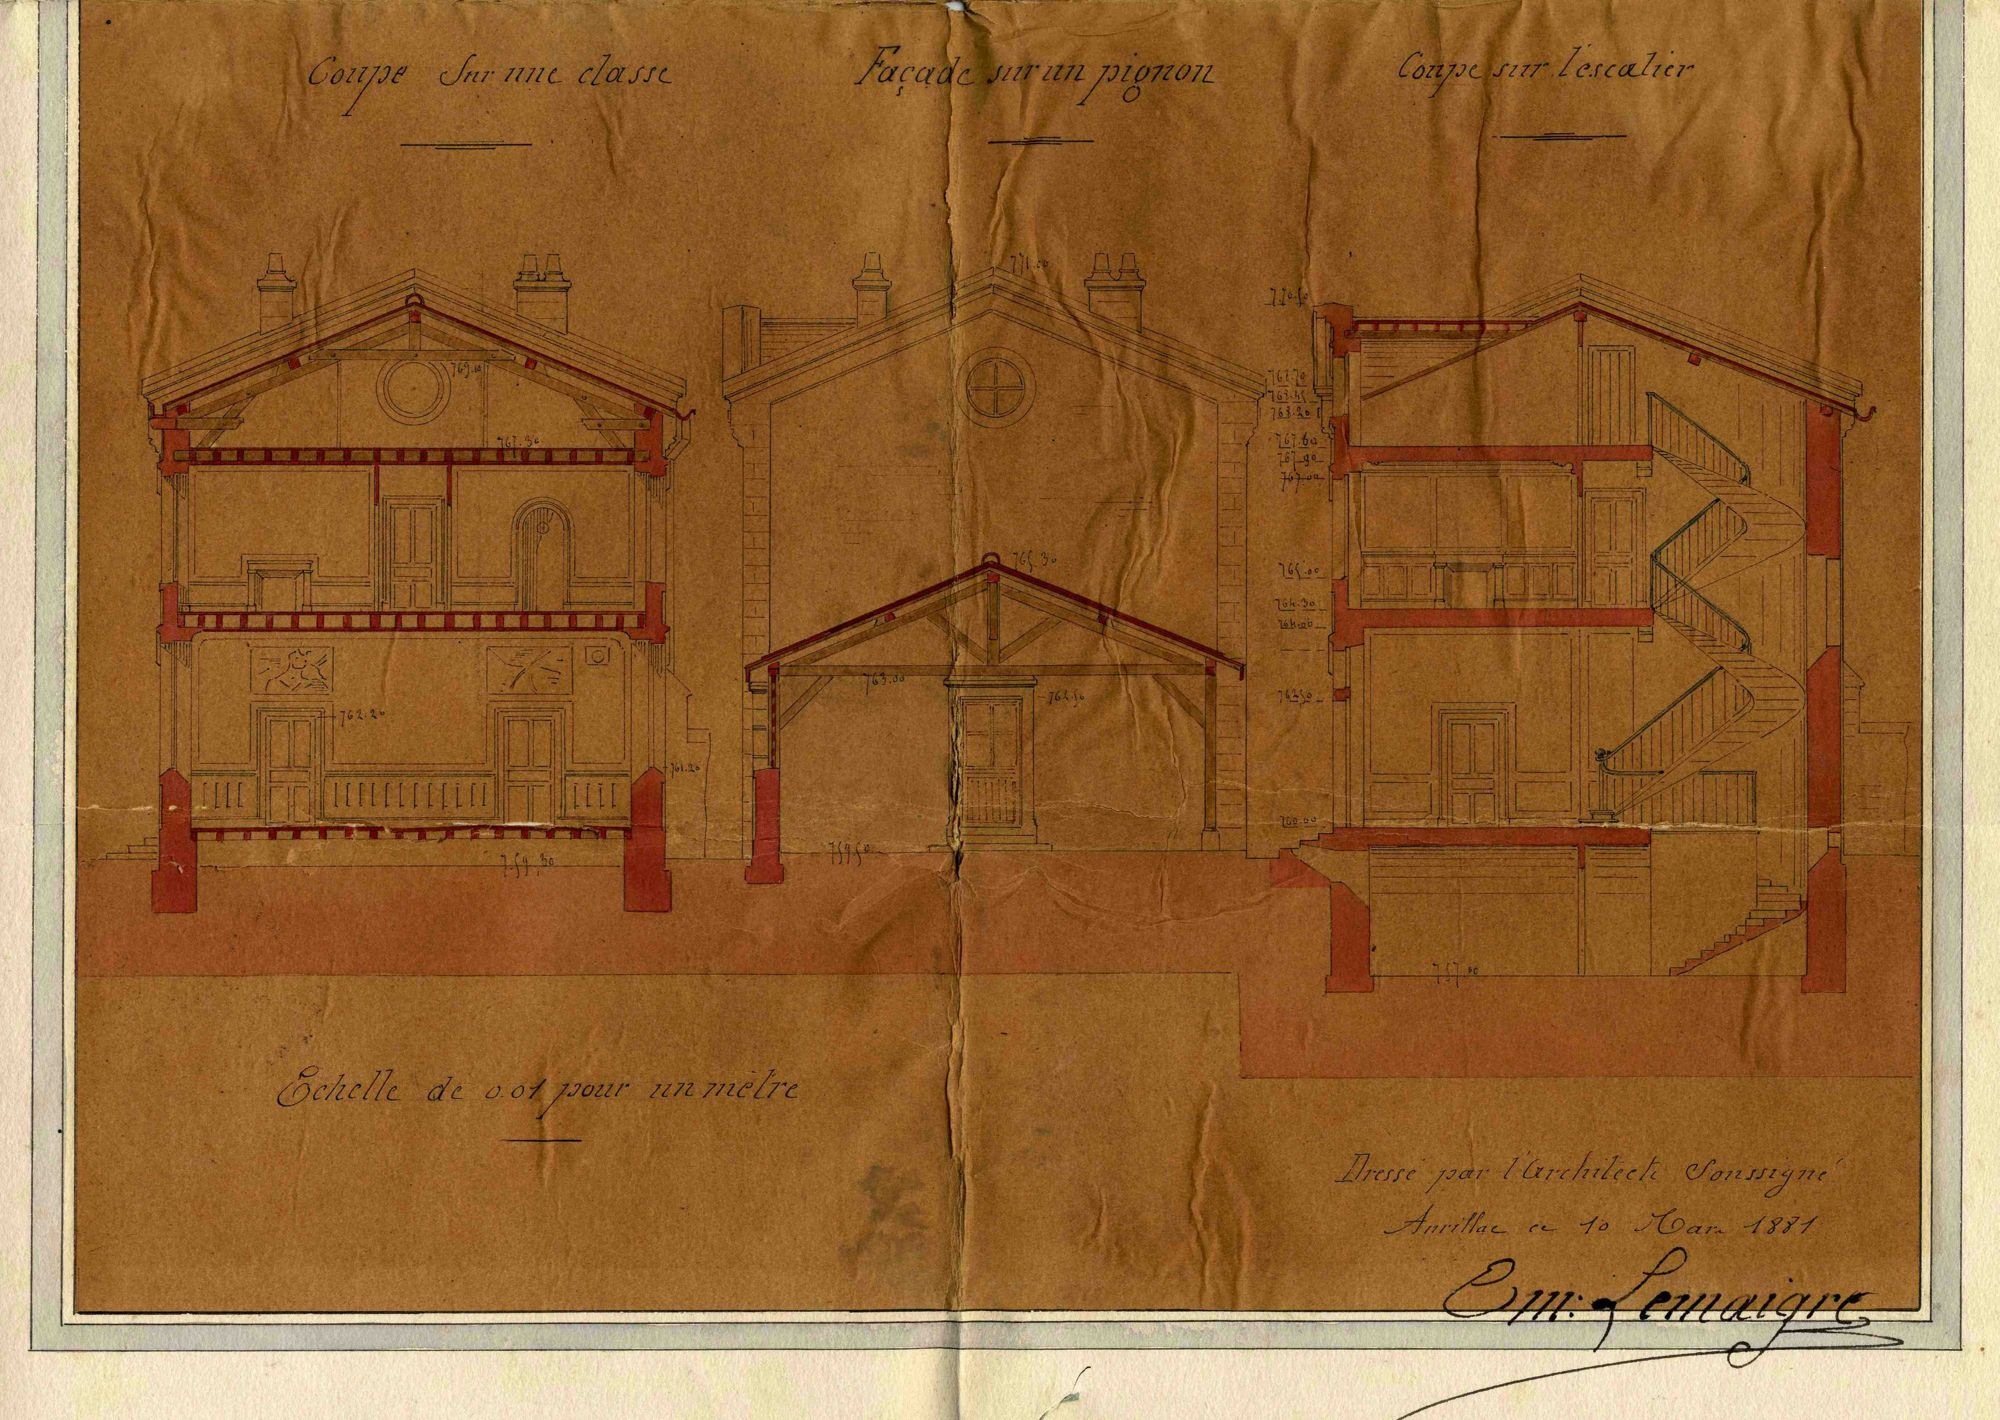 Coupe sur une classe
Façade sur un pignon
Coupe sur l'escalier
771.00
770.50
769.10
768.70
768.45
768.20
767.30
767.60
767.90
767.00
765.30
765.00
764.30
764.00
763.00
762.50
762.50
762.20
761.20
760.00
759.50
759.30
757.00
Echelle de 0.01 pour un mètre
Dressé par l'Architecte Soussigné
Aurillac ce 10 Mars 1881
Em: Lemaigre